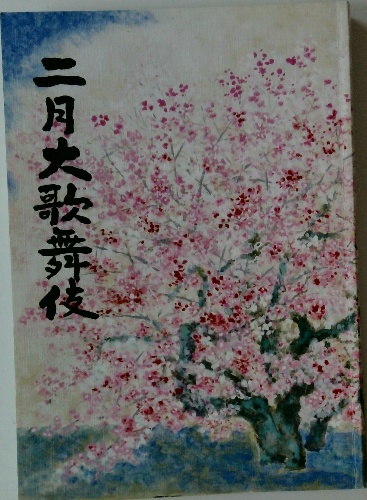 二月大歌舞伎